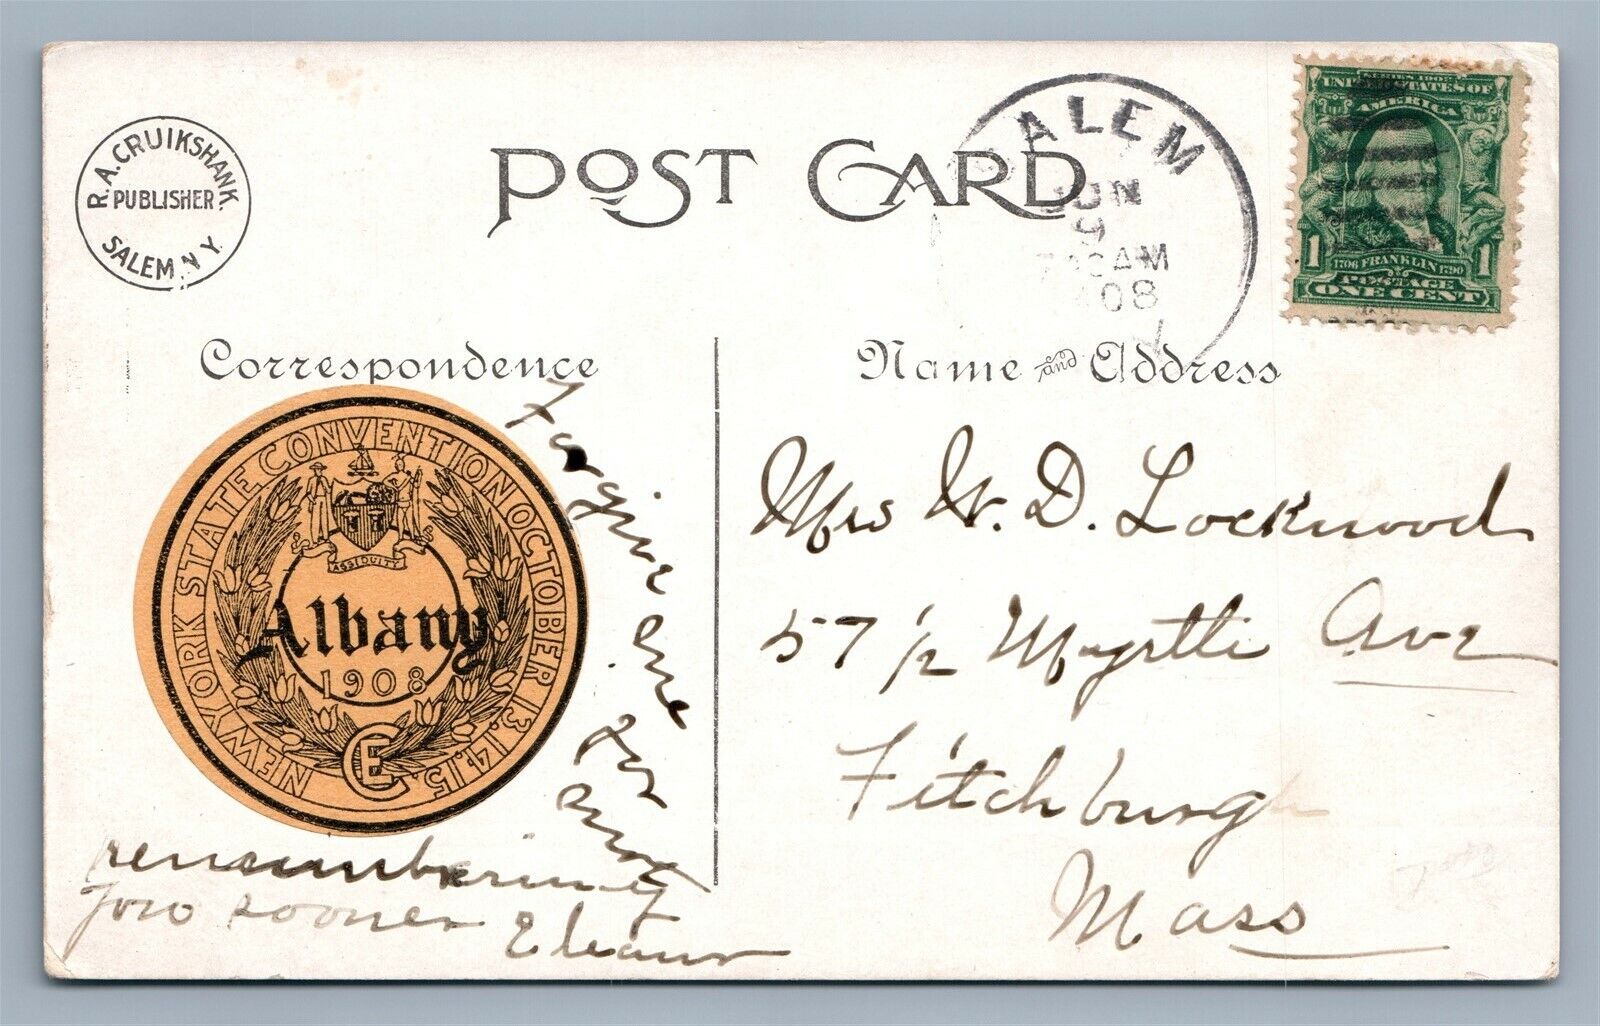 R.A.CRUIKSHANK.
PUBLISHER
SALEM, N.Y.
POST CARD
SALEM
JUN
9
AM
08
SERIES 1902
UNITED STATES OF
AMERICA
1 1706 FRANKLIN 1790 1
POSTAGE
ONE CENT
Correspondence
Name and Address
NEW YORK STATE CONVENTION OCTOBER 13.14.15.
ASSIDUITY
Albany
1908
CE
Forgive me
for
not
remembering
you sooner
Eleanor
Mrs W. D. Lockwood
57 1/2 Myrtle Ave
Fitchburgh
Mass